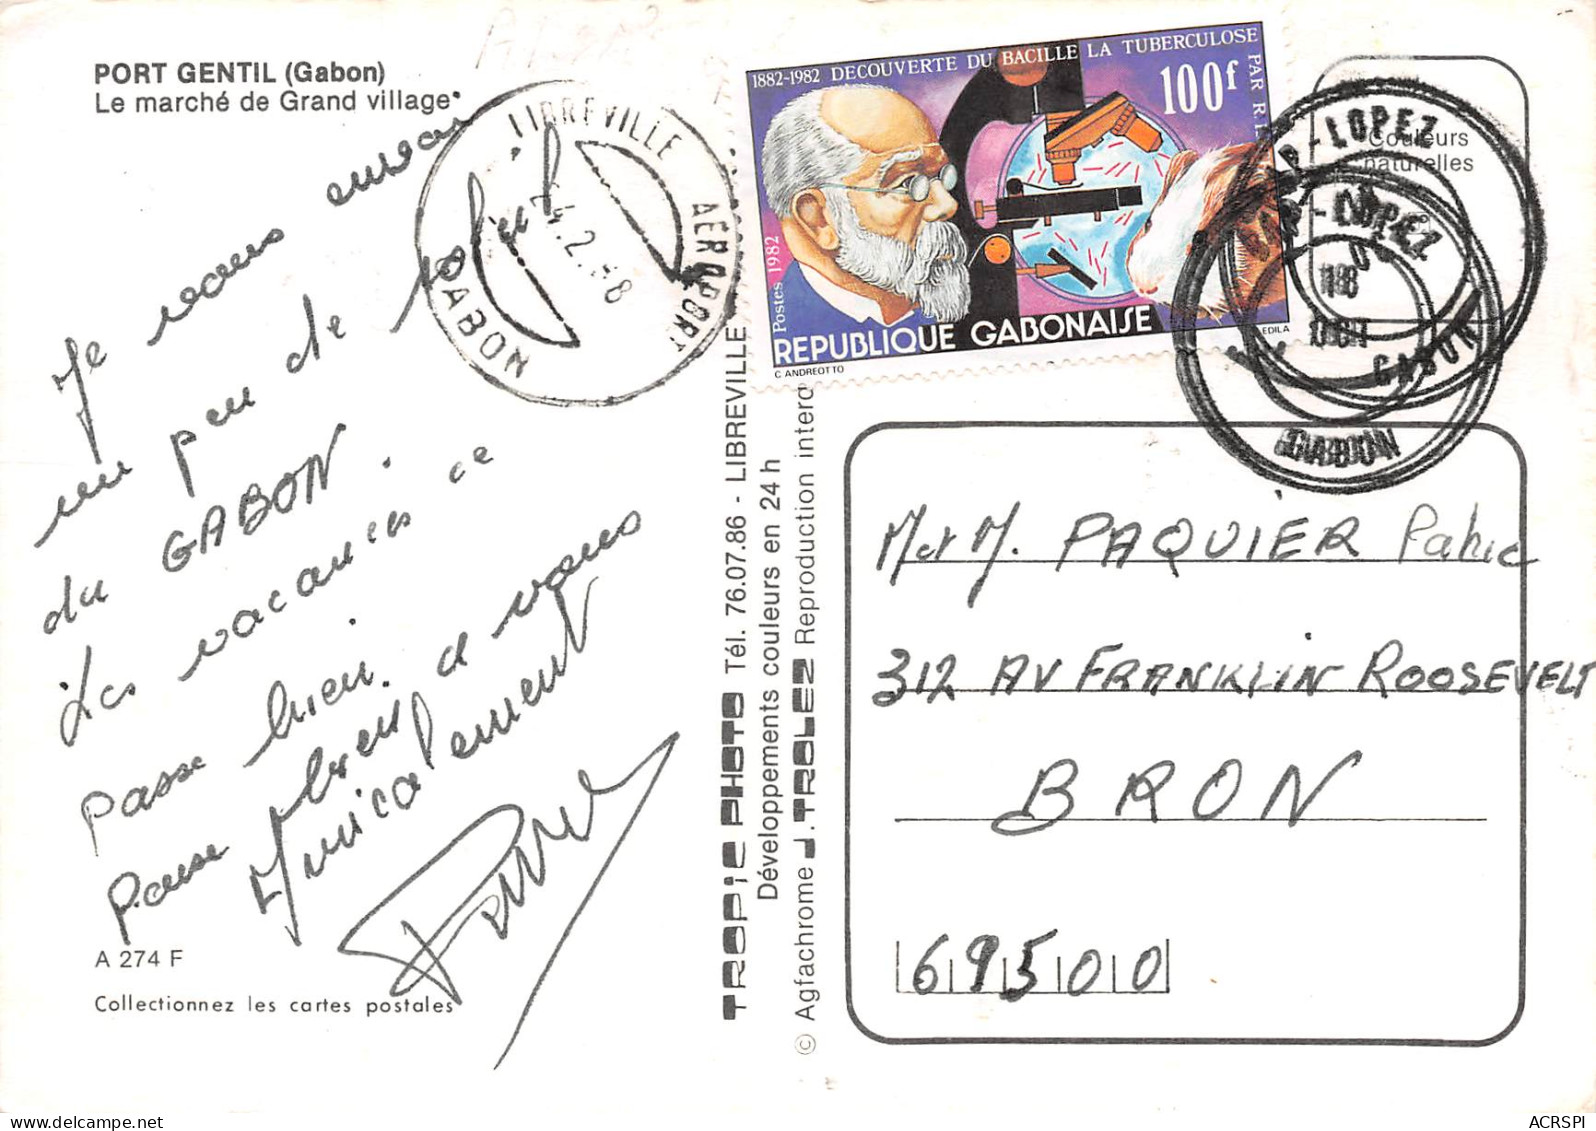 PORT GENTIL (Gabon)
Le marché de Grand village
Je vous envoi
un peu de soleil
du GABON.
Les vacances ce
passe bien.
passe bien a vous
Amicalement
A 274 F
Collectionnez les cartes postales
LIBREVILLE
AEROPORT
GABON
TROPIC PHOTO Tél. 76.07.86 - LIBREVILLE
Développements couleurs en 24 h
© Agfachrome J. TROLEZ Reproduction interd
1882-1982 DECOUVERTE DU BACILLE LA TUBERCULOSE
PAR R.
100f
Postes 1982
REPUBLIQUE GABONAISE
C. ANDREOTTO
EDILA
Couleurs
naturelles
CAP-LOPEZ
CAP-LOPEZ
GABON
GABON
M et M. PAQUIER Patric
312 AV FRANKLIN ROOSEVELT
BRON
69500
ACRSPI